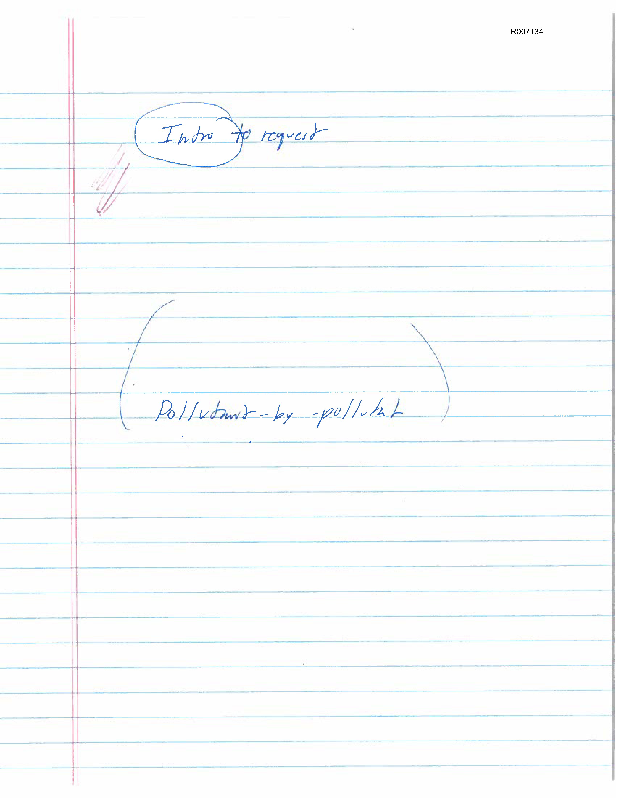 R007134
Intro to request
Pollutant-by-pollutant